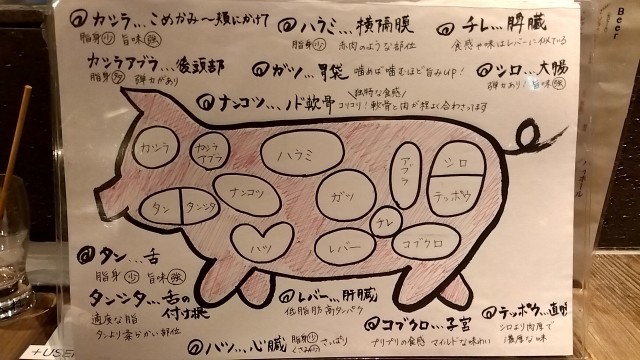 @カシラ…こめかみ～頬にかけて
脂身少 旨味強
カシラアブラ…後頭部
脂身多 弾力があり
@ハラミ…横隔膜
脂身少 赤肉のような部位
@チレ…脾臓
食感や味はレバーに似ている
@ガツ…胃袋 噛めば噛むほど旨みup!
@シロ…大腸
弾力あり 旨味強
@ナンコツ…ノド軟骨
独特な食感
コリコリ!軟骨と肉が程よく合わさってます
カシラ
カシラ
アブラ
ハラミ
アブラ
シロ
テッポウ
タン
タンシタ
ナンコツ
ガツ
チレ
ハツ
レバー
コブクロ
@タン…舌
脂身少 旨味強
タンシタ…舌の
付け根
適度な脂
タンより柔らかい部位
@ハツ…心臓
脂身少 さっぱり
@レバー…肝臓
低脂肪高タンパク
@コブクロ…子宮
プリプリの食感 マイルドな味わい
@テッポウ…直腸
シロより肉厚で
濃厚な味
Beer
+USE